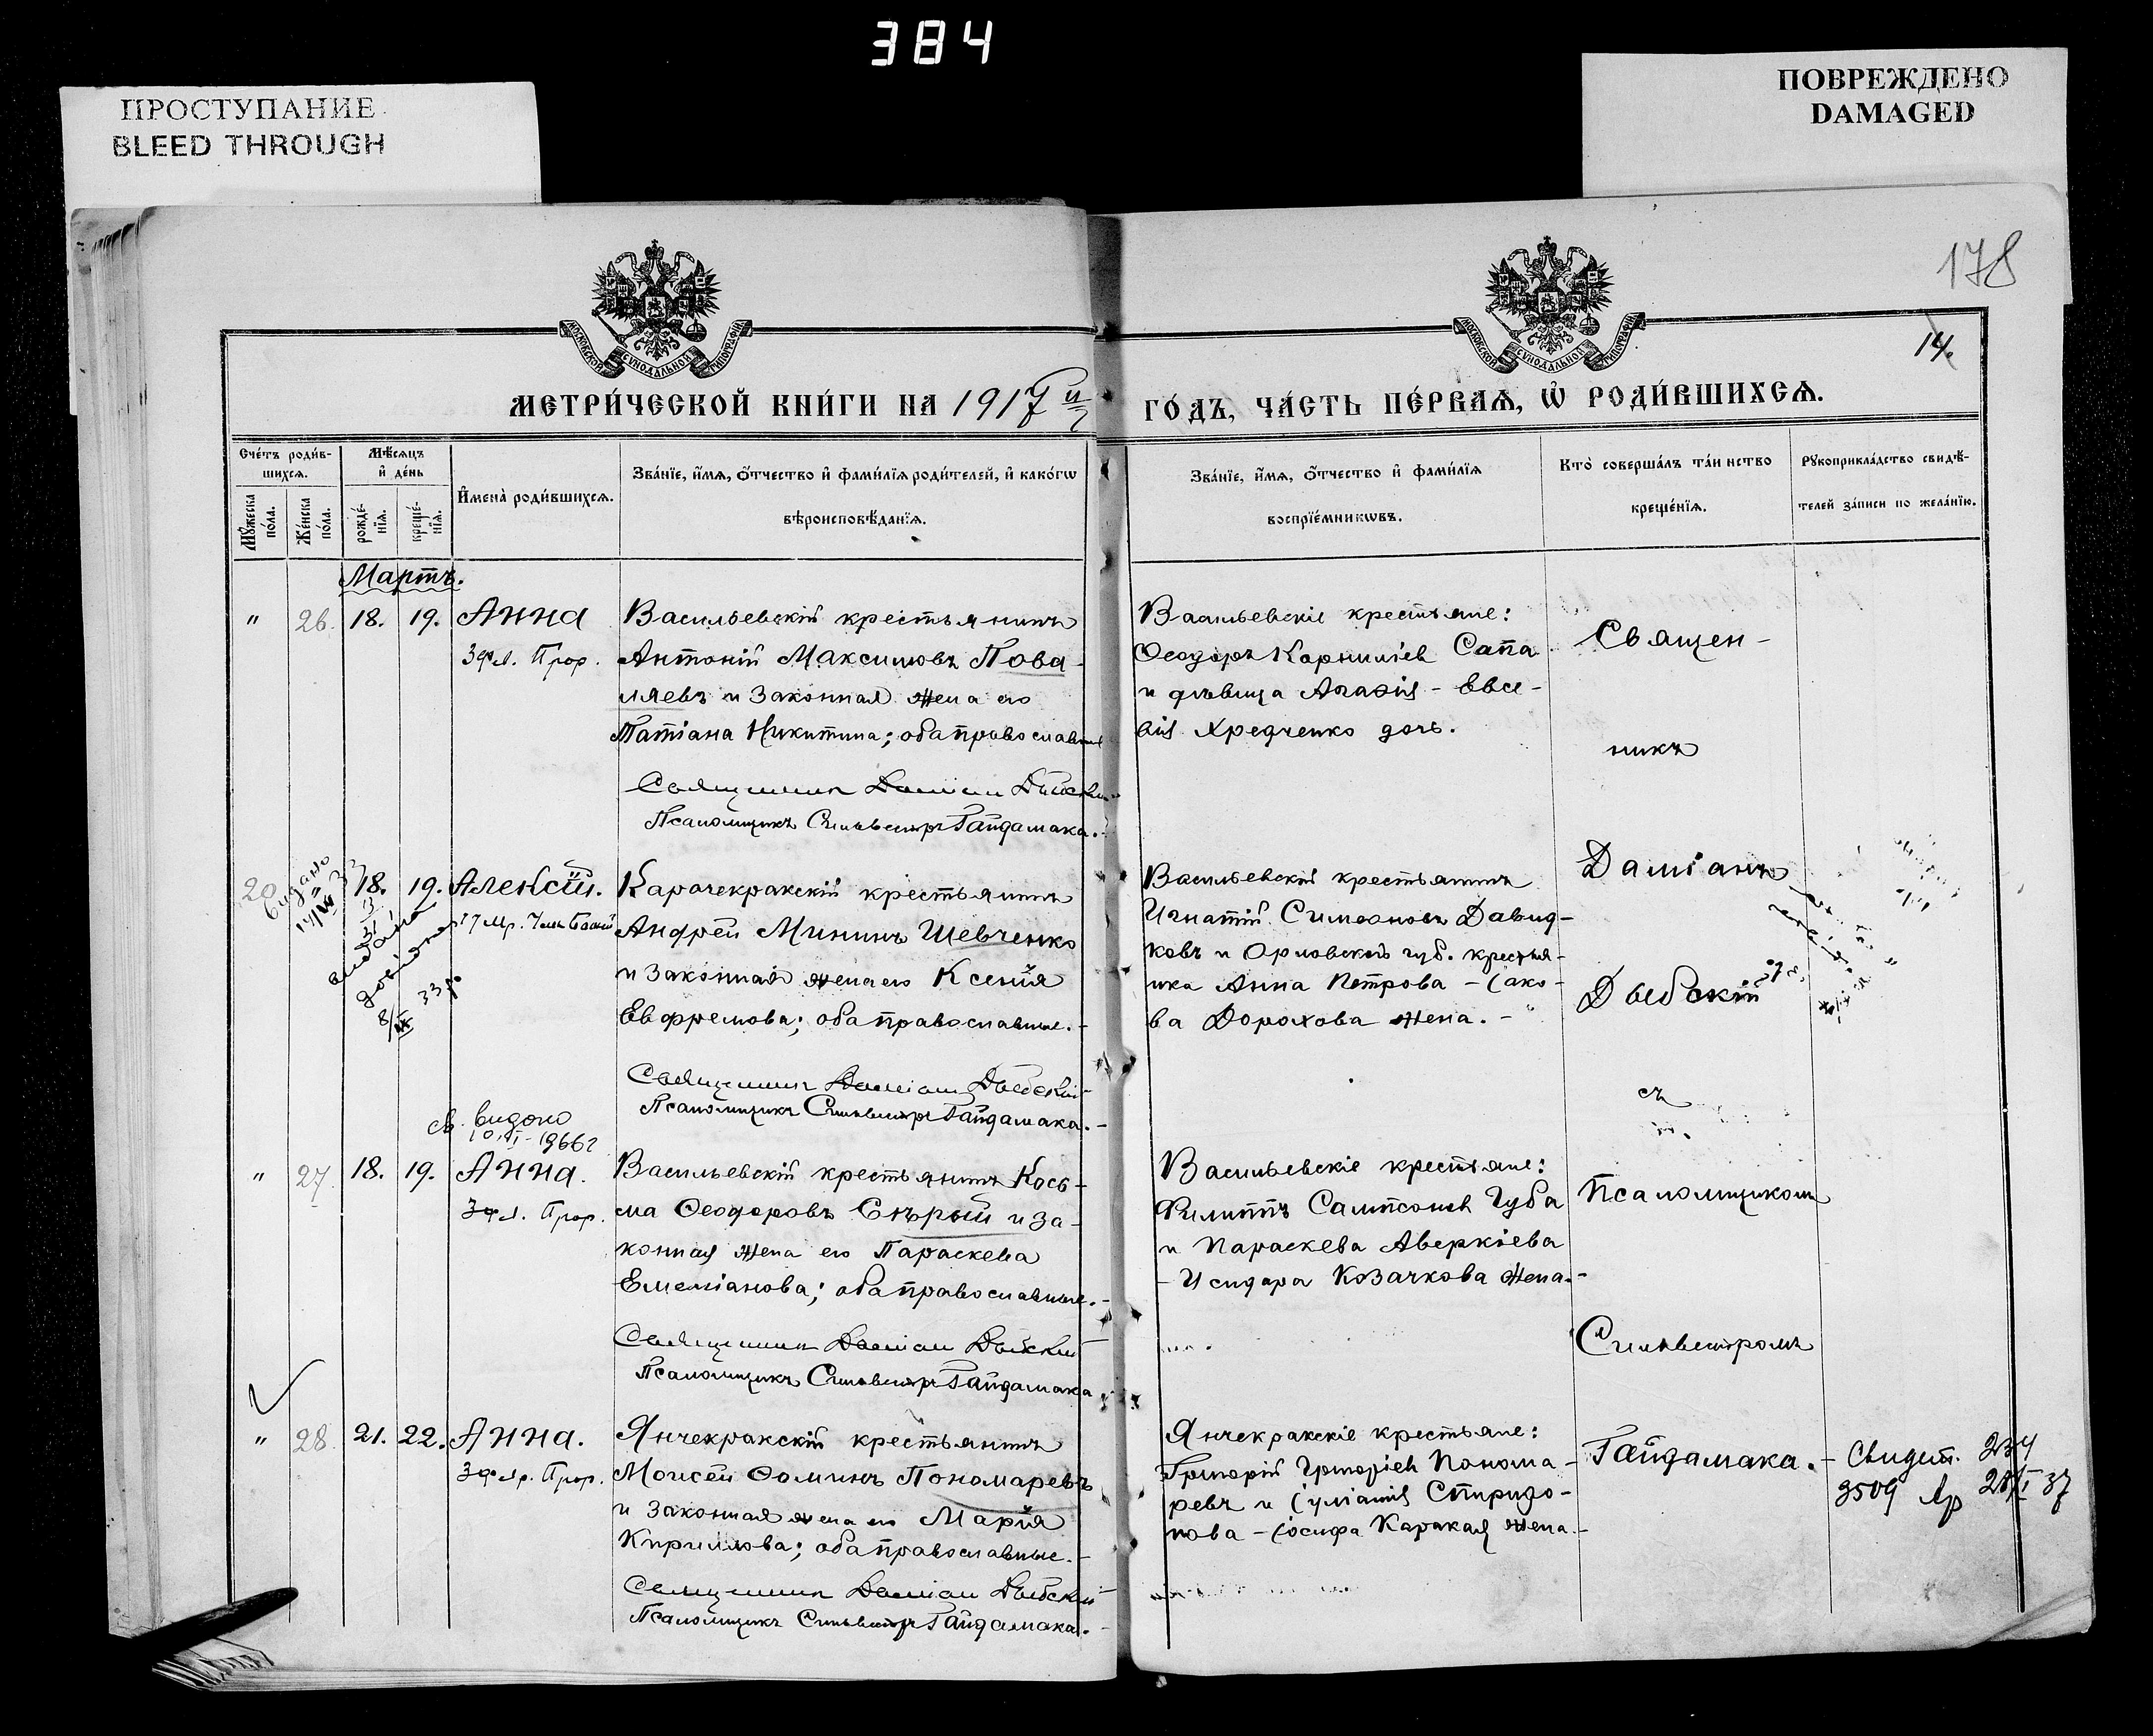 384
ПРОСТУПАНИЕ
BLEED THROUGH
ПОВРЕЖДЕНО
DAMAGED
178
14.
МОСКОВСКОЙ СѴНОДАЛЬНОЙ ТИПОГРАФІИ
МОСКОВСКОЙ СѴНОДАЛЬНОЙ ТИПОГРАФІИ
МЕТРИ́ЧЕСКОЙ КНИ́ГИ НА 1917й
ГО́ДЪ, ЧА́СТЬ ПЕ́РВАѦ, Ѡ҆ РОДИ́ВШИХСѦ.
Сче́тъ роди́в-
шихсѧ.
Мꙋ́жеска по́ла.
Же́нска по́ла.
Мѣ́сѧцъ
и҆ де́нь
рожде́-
нїѧ.
креще́-
нїѧ.
И҆мена̀ роди́вшихсѧ.
Зва́нїе, и҆́мѧ, ѻ҆́тчество и҆ фами́лїѧ роди́телей, и҆ како́гѡ
вѣроисповѣ́данїѧ.
Зва́нїе, и҆́мѧ, ѻ҆́тчество и҆ фами́лїѧ
воспрїе́мникѡвъ.
Кто̀ соверша́лъ та́инство
креще́нїѧ.
Рꙋкоприкла́дство свидѣ́-
телей за́писи по жела́нїю.
Мартъ.
" 26. 18. 19. Анна
3 ф л. Прор.
Васильевскій крестьянинъ
Антоній Максимовъ Пова-
ляевъ и законная жена его
Татіана Никитина; оба православные
Священникъ Даміанъ Дыбскій
Псаломщикъ Сильвестръ Гайдамака.
Васильевскіе крестьяне:
Ѳеодоръ Корниліевъ Сапа
и дѣвица Агаѳія - Евсе-
вія Хредченко дочь.
Священ-
никъ
20 18. 19. Алексій.
17 Мр. Чел. Божій
видано
довідка
8/IX 33 р.
Карачекракскій крестьянинъ
Андрей Мининъ Шевченко
и законная жена его Ксенія
Евфремова; оба православные.
Священникъ Даміанъ Дыбскій
Псаломщикъ Сильвестръ Гайдамака.
Васильевскій крестьянинъ
Игнатій Симеоновъ Давид-
ковъ и Орловской губ. крестья-
нка Анна Петрова - Іако-
ва Дорохова жена.
Даміанъ
Дыбскій
съ
св. видано
10.VI-1966г
" 27. 18. 19. Анна.
3 ф л. Прор.
Васильевскій крестьянинъ Кось-
ма Ѳеодоровъ Сѣрый и за-
конная жена его Параскева
Емеліанова; оба православные.
Священникъ Даміанъ Дыбскій
Псаломщикъ Сильвестръ Гайдамака.
Васильевскіе крестьяне:
Филиппъ Сампсоновъ Губа
и Параскева Аверкіева
- Исидора Козачкова жена.
Псаломщикомъ
Сильвестромъ
" 28. 21. 22. Анна.
3 ф р. Прор.
Янчекракскій крестьянинъ
Моисей Ѳоминъ Пономаревъ
и законная жена его Марія
Кириллова; оба православные.
Священникъ Даміанъ Дыбскій
Псаломщикъ Сильвестръ Гайдамака.
Янчекракскіе крестьяне:
Григорій Григоріевъ Понома-
ревъ и Іуліанія Спиридо-
нова - Іосифа Каракая жена.
Гайдамака.
Свидет. 234
3509